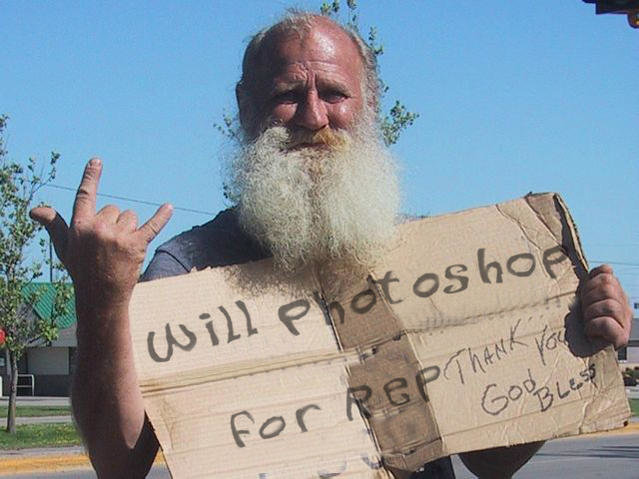 Will photoshop
for REP
THANK YOU
GOD
BLESS